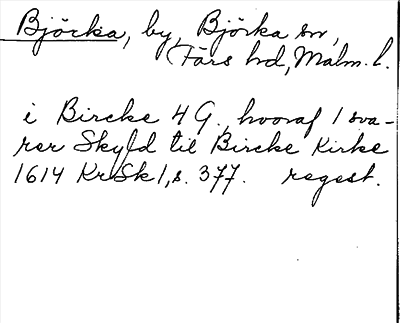 Björka, by, Björka sn,
Färs hd, Malm. l.
i Bircke 4 G., hvoraf 1 sva-
rer Skyld til Bircke Kirke
1614 KrSk 1, s. 377. regest.